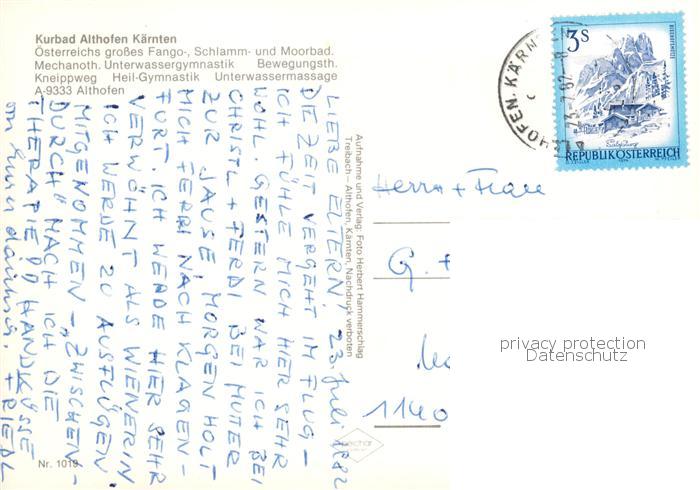 Kurbad Althofen Kärnten
Österreichs großes Fango-, Schlamm- und Moorbad.
Mechanoth. Unterwassergymnastik Bewegungsth.
Kneippweg Heil-Gymnastik Unterwassermassage
A-9333 Althofen
3s
REPUBLIK ÖSTERREICH
ALTHOFEN, KÄRNT
23. Juli 1982
LIEBE ELTERN!
DIE ZEIT VERGEHT IM FLUG-
ICH FÜHLE MICH HIER SEHR
WOHL. GESTERN WAR ICH BEI
CHRISTL + FERDI BEI MUTER
ZUR JAUSE MORGEN HOLT
MICH FERRI NACH KLAGEN-
FURT ICH WERDE HIER SEHR
VERWÖHNT ALS WIENERIN
ICH WERDE ZU AUSFLÜGEN
MITGENOMMEN - "ZWISCHEN-
DURCH" MACH ICH DIE
THERAPIE HANDKÜSSE
von Eurer
Aufnahme und Verlag: Foto Herbert Hammerschlag
Treibach - Althofen, Kärnten, Nachdruck verboten
Herrn + Frau
G. +
1140
privacy protection
Datenschutz
Nr. 1019